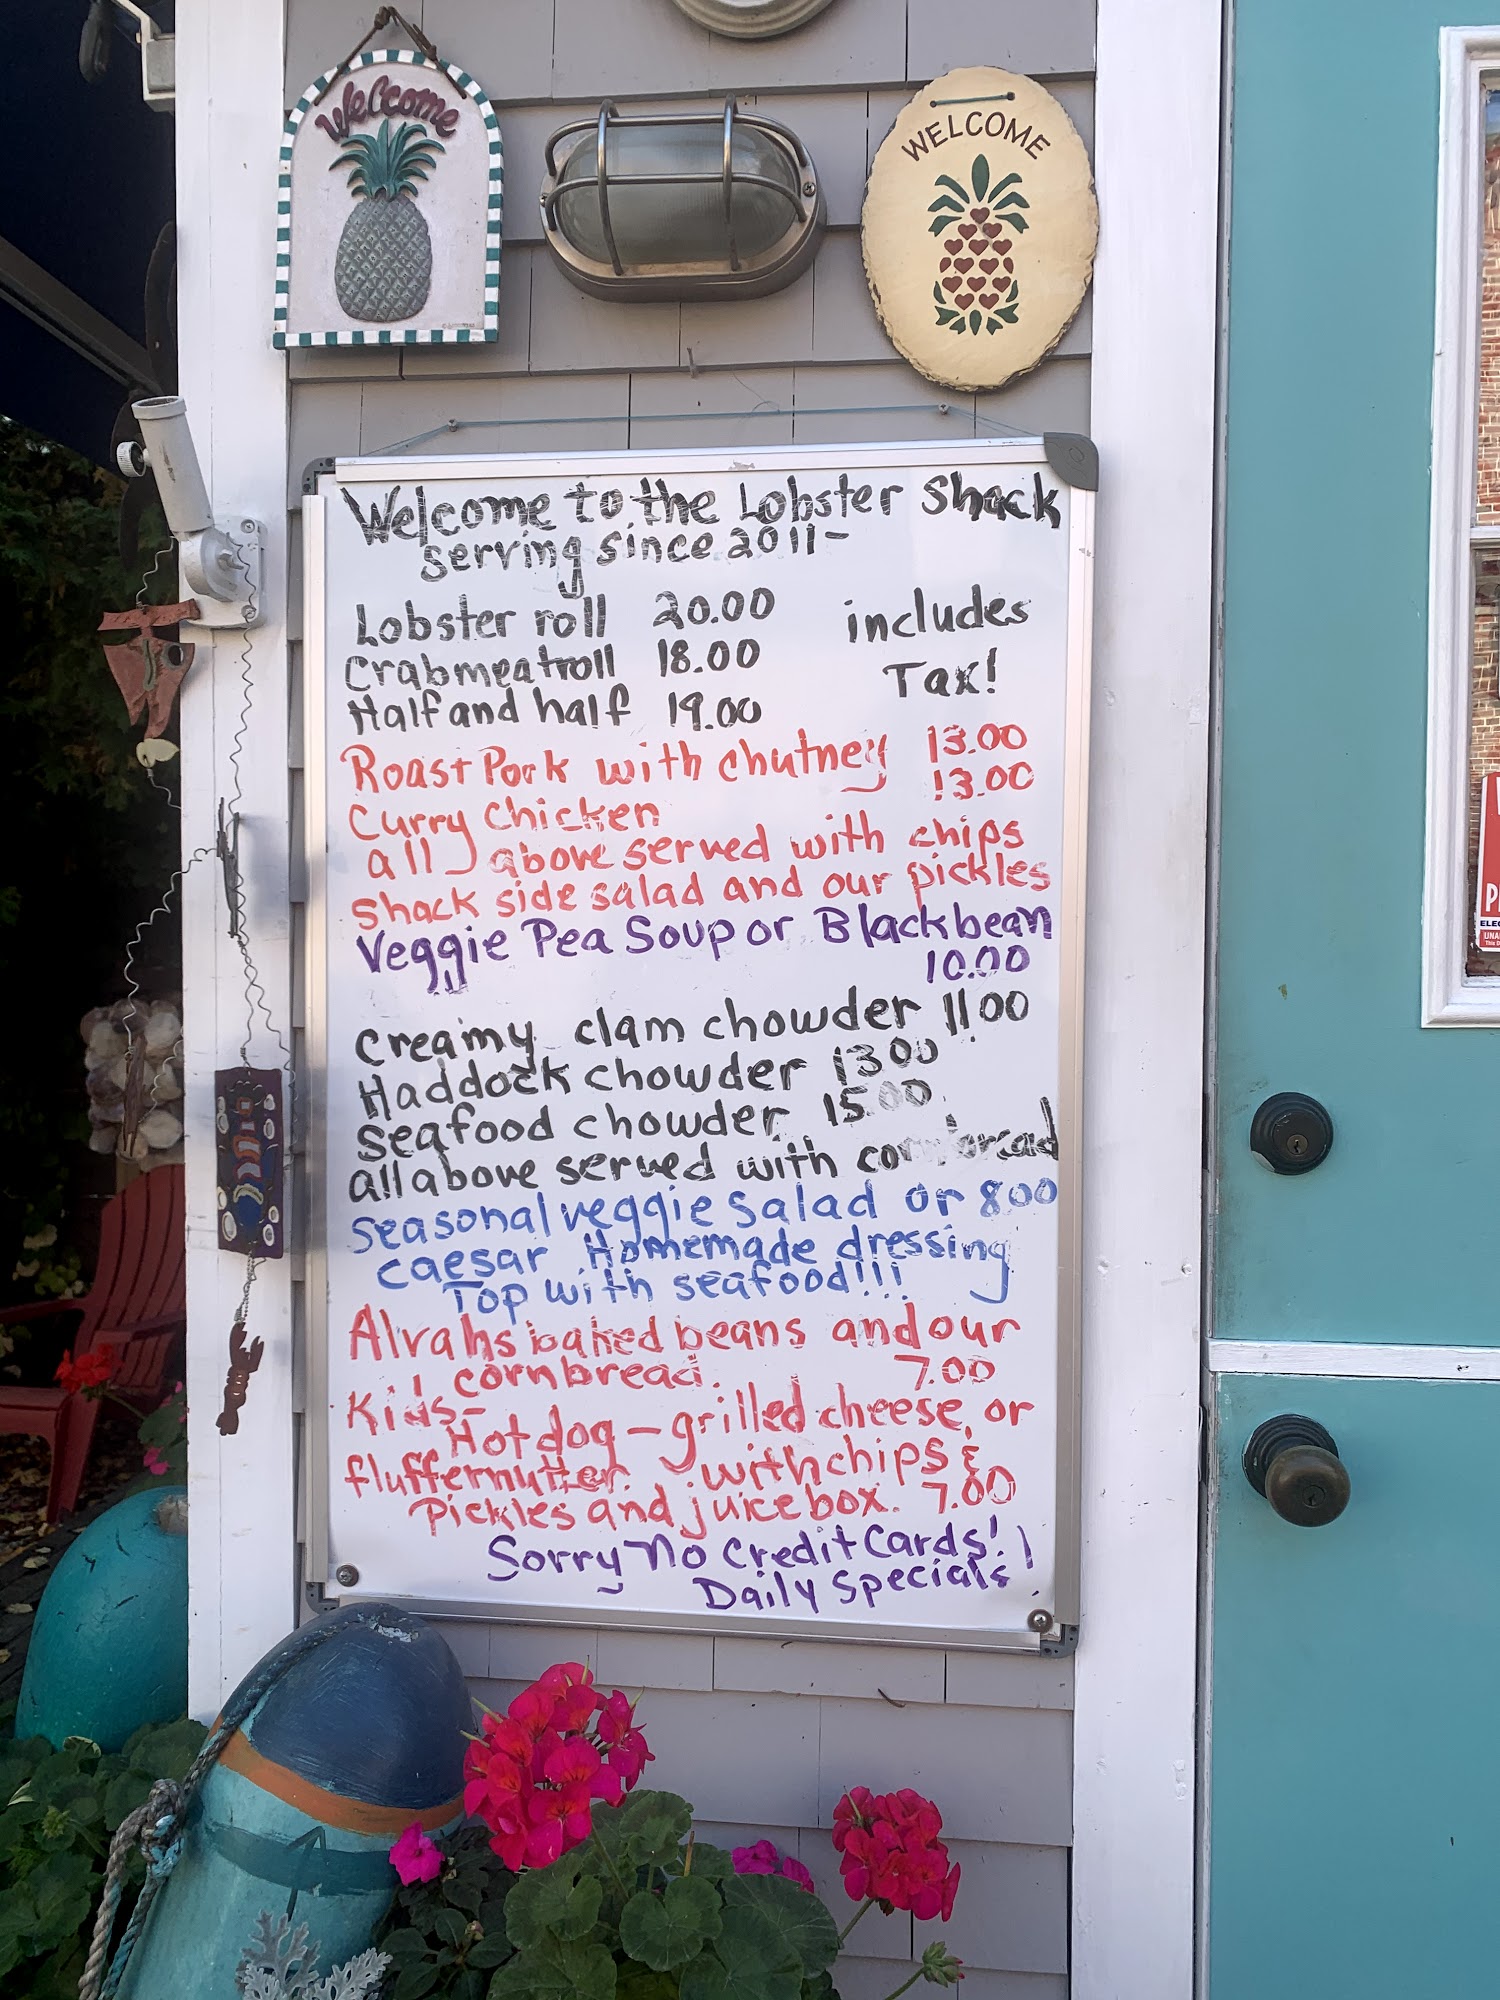 Welcome
WELCOME
Welcome to the Lobster Shack
serving since 2011-
Lobster roll 20.00 includes
Crabmeat roll 18.00 Tax!
Half and half 19.00
Roast Pork with chutney 13.00
Curry Chicken 13.00
all above served with chips
shack side salad and our pickles
Veggie Pea Soup or Black bean
10.00
Creamy clam chowder 11.00
Haddock chowder 13.00
Seafood chowder 15.00
all above served with cornbread
Seasonal veggie salad or 8.00
caesar. Homemade dressing
Top with seafood!!!
Alvahs baked beans and our
cornbread. 7.00
Kids-
Hot dog - grilled cheese, or
fluffernutter. with chips &
Pickles and juice box. 7.00
Sorry No Credit Cards!
Daily Specials!